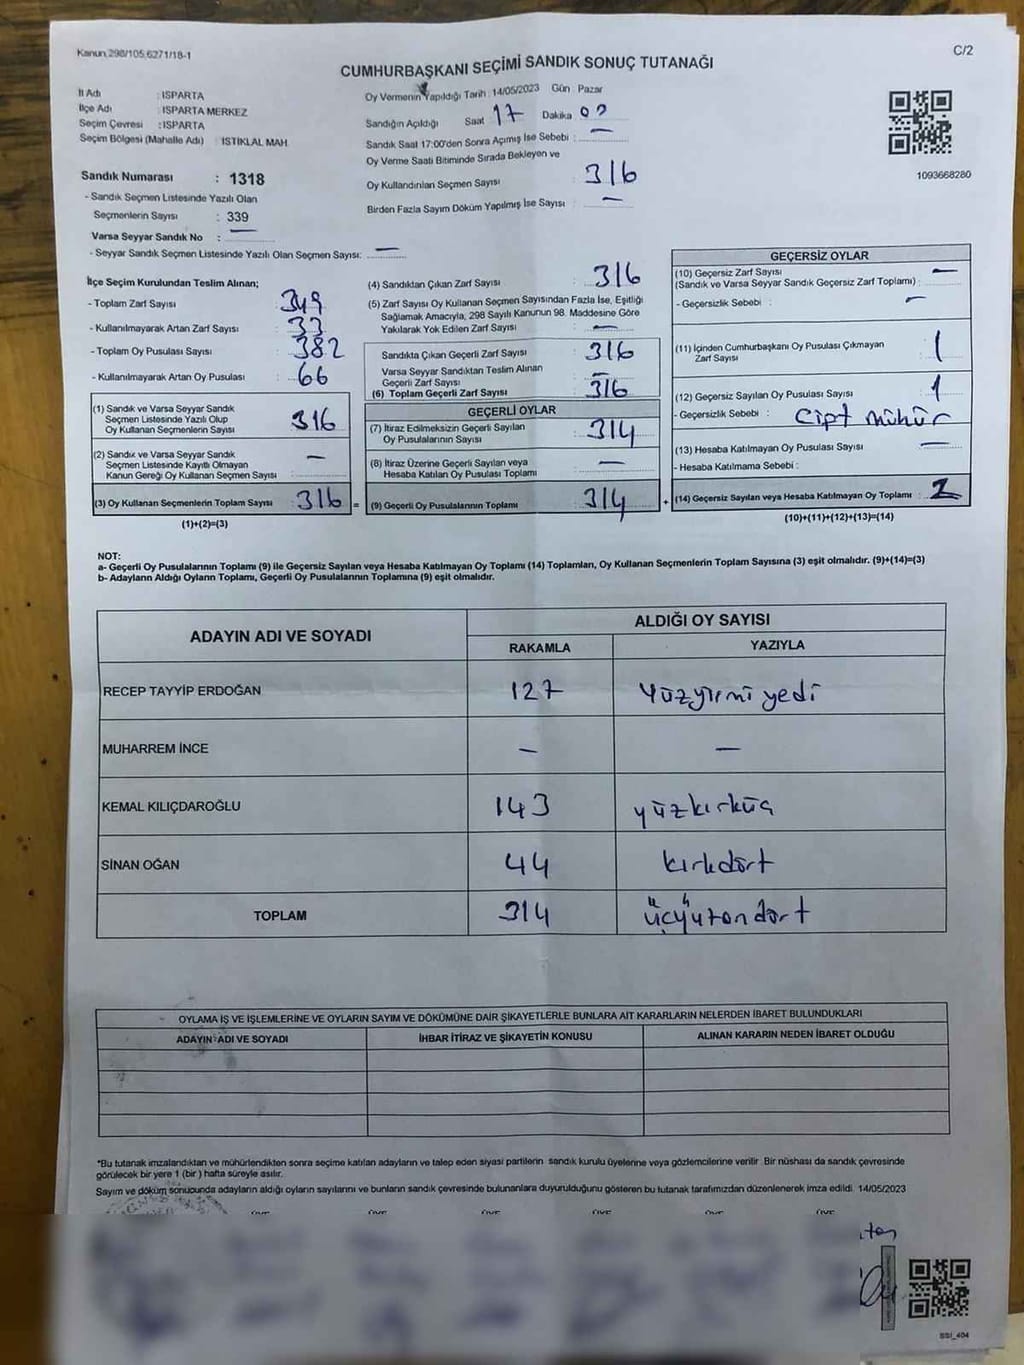 Kanun 298/105,6271/18-1
C/2
CUMHURBAŞKANI SEÇİMİ SANDIK SONUÇ TUTANAĞI
İl Adı : ISPARTA
İlçe Adı : ISPARTA MERKEZ
Seçim Çevresi : ISPARTA
Seçim Bölgesi (Mahalle Adı) : ISTİKLAL MAH.
Sandık Numarası : 1318
- Sandık Seçmen Listesinde Yazılı Olan
Seçmenlerin Sayısı : 339
Varsa Seyyar Sandık No : —
- Seyyar Sandık Seçmen Listesinde Yazılı Olan Seçmen Sayısı: —
Oy Vermenin Yapıldığı Tarih : 14/05/2023 Gün : Pazar
Sandığın Açıldığı Saat 17 Dakika 00
Sandık Saat 17:00'den Sonra Açımış İse Sebebi : —
Oy Verme Saati Bitiminde Sırada Bekleyen ve
Oy Kullandırılan Seçmen Sayısı : 316
Birden Fazla Sayım Döküm Yapılmış İse Sayısı : —
1093668280
İlçe Seçim Kurulundan Teslim Alınan;
- Toplam Zarf Sayısı : 349
- Kullanılmayarak Artan Zarf Sayısı : 33
- Toplam Oy Pusulası Sayısı : 382
- Kullanılmayarak Artan Oy Pusulası : 66
(1) Sandık ve Varsa Seyyar Sandık
Seçmen Listesinde Yazılı Olup
Oy Kullanan Seçmenlerin Sayısı : 316
(2) Sandık ve Varsa Seyyar Sandık
Seçmen Listesinde Kayıtlı Olmayan
Kanun Gereği Oy Kullanan Seçmen Sayısı : —
(3) Oy Kullanan Seçmenlerin Toplam Sayısı : 316 =
(1)+(2)=(3)
(4) Sandıktan Çıkan Zarf Sayısı : 316
(5) Zarf Sayısı Oy Kullanan Seçmen Sayısından Fazla İse, Eşitliği
Sağlamak Amacıyla, 298 Sayılı Kanunun 98. Maddesine Göre
Yakılarak Yok Edilen Zarf Sayısı : —
Sandıkta Çıkan Geçerli Zarf Sayısı : 316
Varsa Seyyar Sandıktan Teslim Alınan
Geçerli Zarf Sayısı : —
(6) Toplam Geçerli Zarf Sayısı : 316
GEÇERLİ OYLAR
(7) İtiraz Edilmeksizin Geçerli Sayılan
Oy Pusulalarının Sayısı : 314
(8) İtiraz Üzerine Geçerli Sayılan veya
Hesaba Katılan Oy Pusulası Toplamı : —
(9) Geçerli Oy Pusulalarının Toplamı : 314 +
GEÇERSİZ OYLAR
(10) Geçersiz Zarf Sayısı
(Sandık ve Varsa Seyyar Sandık Geçersiz Zarf Toplamı) : —
- Geçersizlik Sebebi : —
(11) İçinden Cumhurbaşkanı Oy Pusulası Çıkmayan
Zarf Sayısı : 1
(12) Geçersiz Sayılan Oy Pusulası Sayısı : 1
- Geçersizlik Sebebi : Cipt mühür
(13) Hesaba Katılmayan Oy Pusulası Sayısı : —
- Hesaba Katılmama Sebebi :
(14) Geçersiz Sayılan veya Hesaba Katılmayan Oy Toplamı : 2
(10)+(11)+(12)+(13)=(14)
NOT:
a- Geçerli Oy Pusulalarının Toplamı (9) ile Geçersiz Sayılan veya Hesaba Katılmayan Oy Toplamı (14) Toplamları, Oy Kullanan Seçmenlerin Toplam Sayısına (3) eşit olmalıdır. (9)+(14)=(3)
b- Adayların Aldığı Oyların Toplamı, Geçerli Oy Pusulalarının Toplamına (9) eşit olmalıdır.
ADAYIN ADI VE SOYADI
ALDIĞI OY SAYISI
RAKAMLA YAZIYLA
RECEP TAYYİP ERDOĞAN 127 Yüzyirmi yedi
MUHARREM İNCE — —
KEMAL KILIÇDAROĞLU 143 yüzkırküç
SİNAN OĞAN 44 kırkdört
TOPLAM 314 üçyüzondört
OYLAMA İŞ VE İŞLEMLERİNE VE OYLARIN SAYIM VE DÖKÜMÜNE DAİR ŞİKAYETLERLE BUNLARA AİT KARARLARIN NELERDEN İBARET BULUNDUKLARI
ADAYIN ADI VE SOYADI İHBAR İTİRAZ VE ŞİKAYETİN KONUSU ALINAN KARARIN NEDEN İBARET OLDUĞU
*Bu tutanak imzalandıktan ve mühürlendikten sonra seçime katılan adayların ve talep eden siyasi partilerin sandık kurulu üyelerine veya gözlemcilerine verilir. Bir nüshası da sandık çevresinde
görülecek bir yere 1 (bir) hafta süreyle asılır.
Sayım ve döküm sonucunda adayların aldığı oyların sayılarını ve bunların sandık çevresinde bulunanlara duyurulduğunu gösteren bu tutanak tarafımızdan düzenlenerek imza edildi. 14/05/2023
ÜYE ÜYE ÜYE ÜYE ÜYE ÜYE
SSI_404